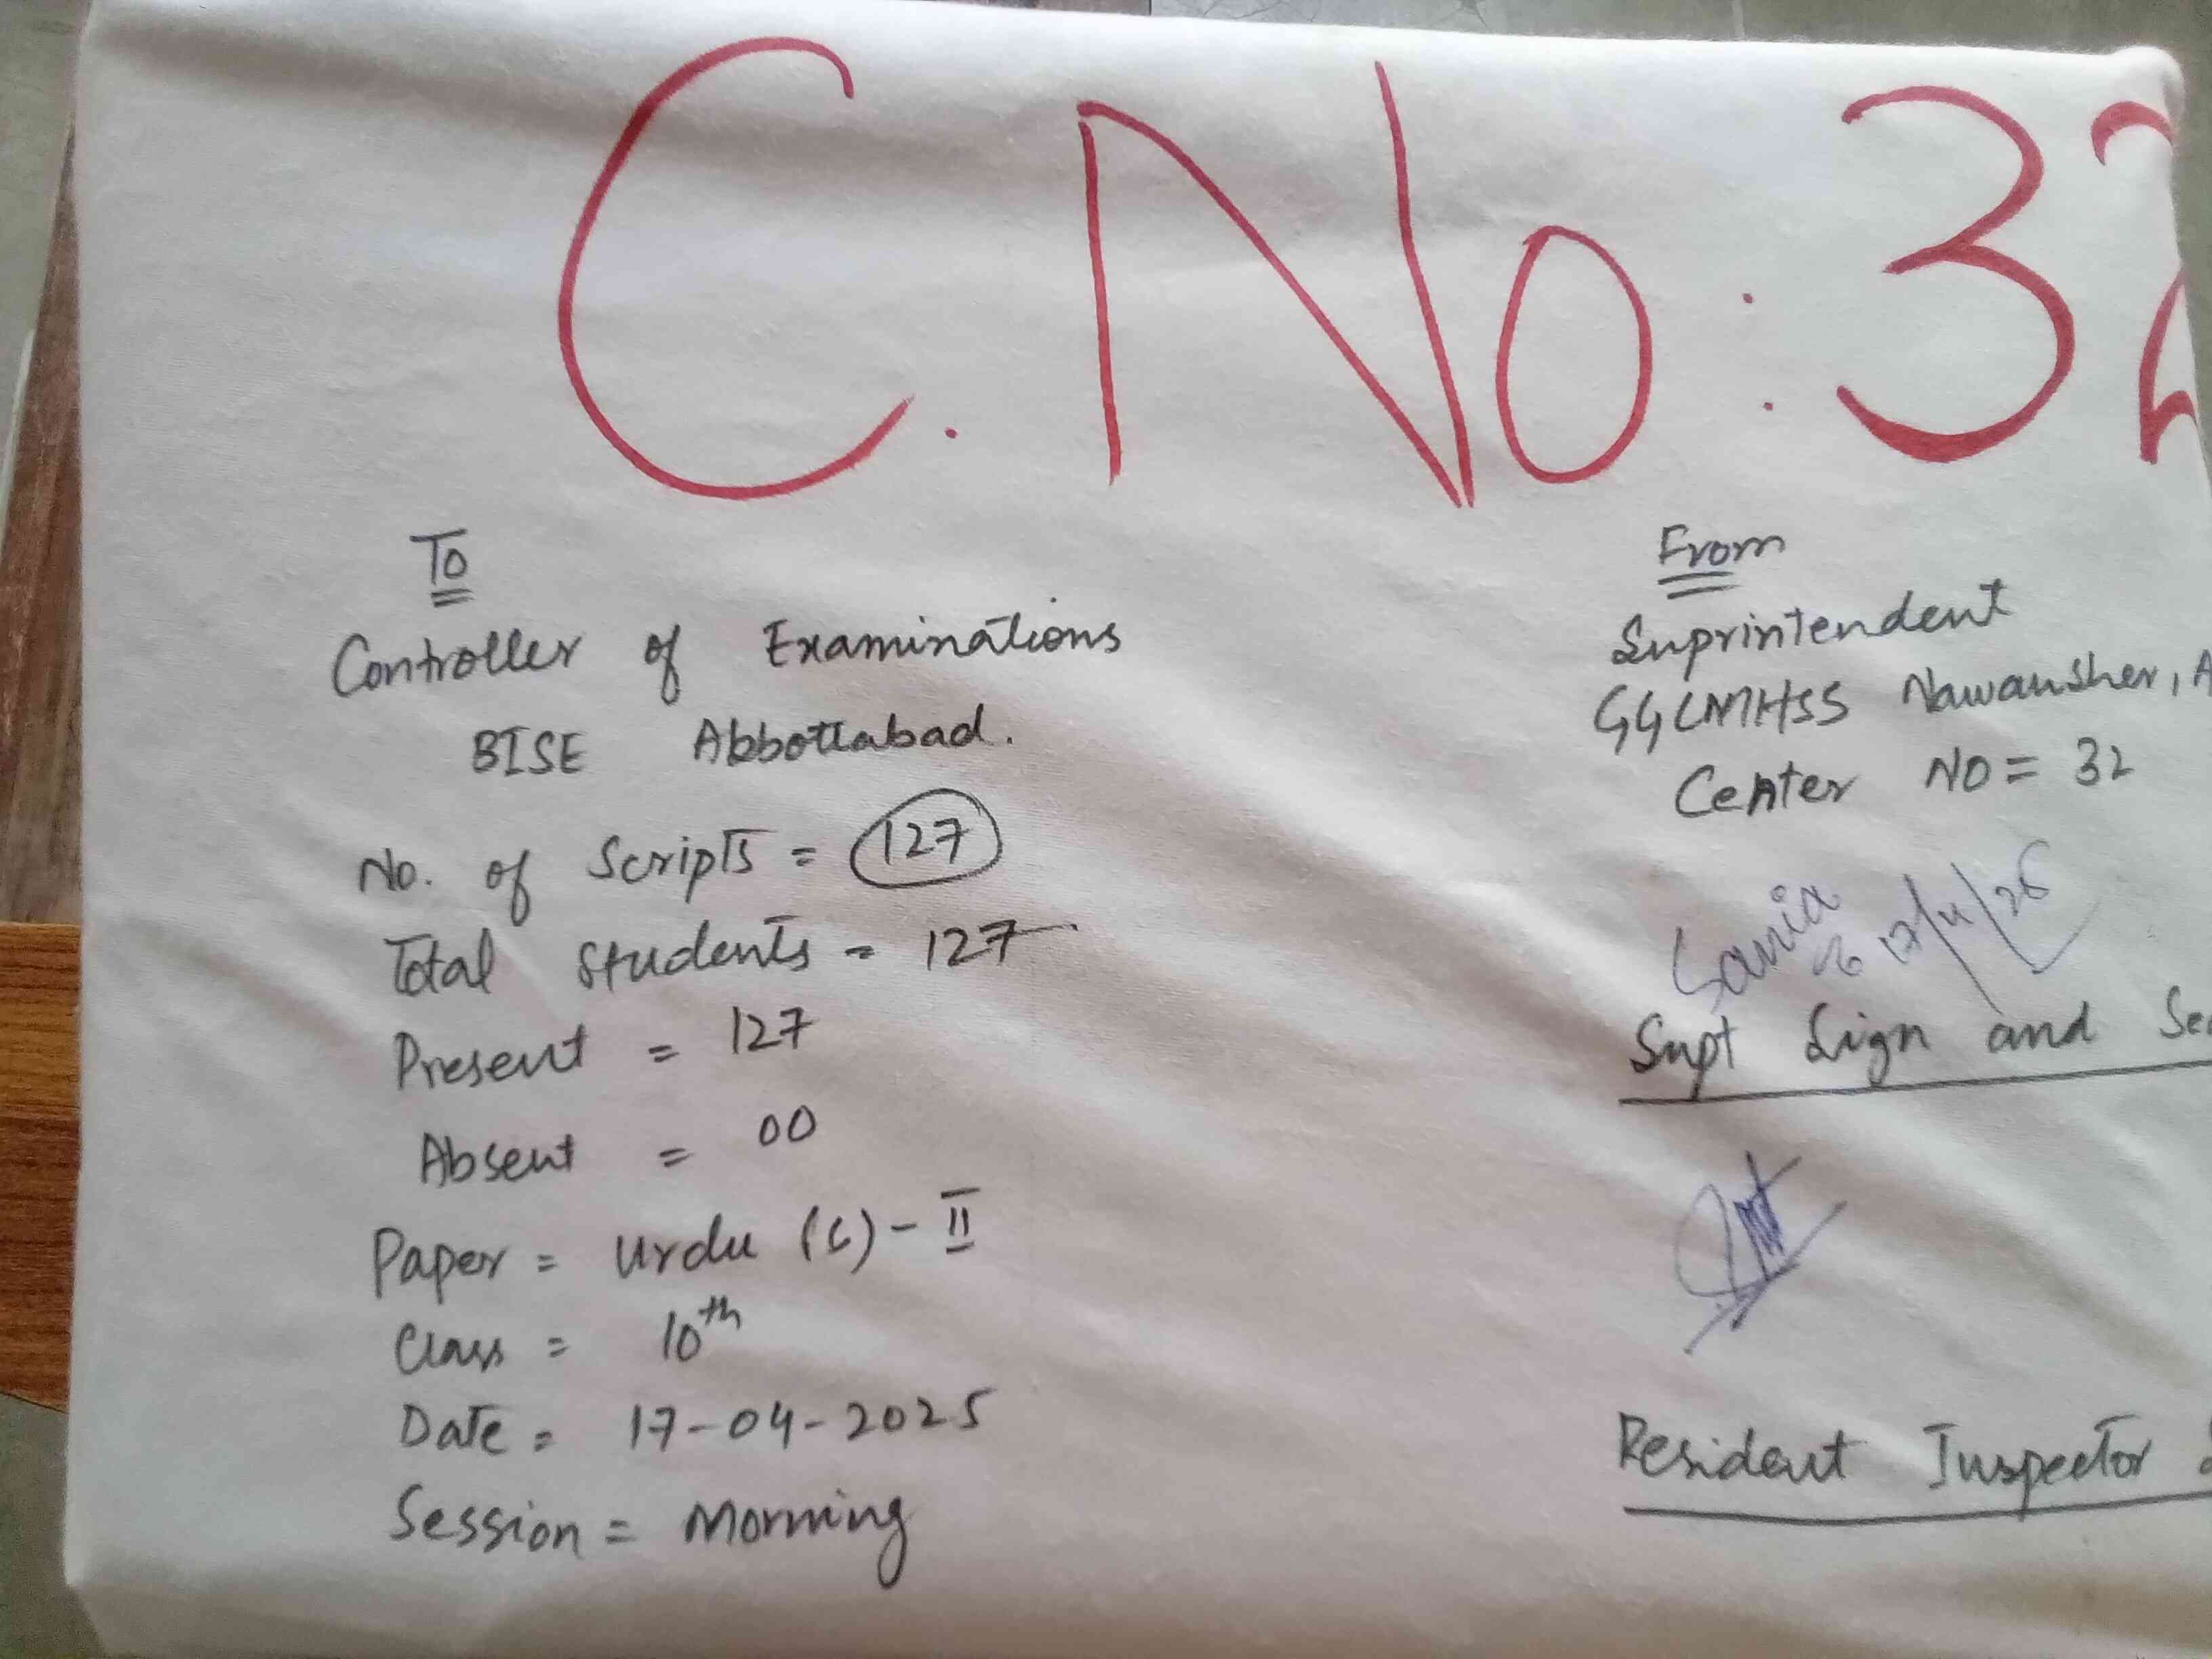 C. No : 32
To
Controller of Examinations
BISE Abbottabad.
No. of Scripts = 127
Total Students = 127
Present = 127
Absent = 00
Paper = Urdu (C) - II
Class = 10th
Date = 17-04-2025
Session = Morning
From
Suprintendent
GGCMHSS Nawansher, A
Center NO = 32
Sania
Supt Sign and Sea
Resident Inspector